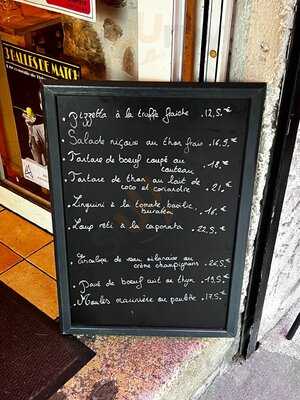 3 BALLES DE MATCH
. Pizzetta à la truffe fraiche . 12,5.€
. Salade niçoise au thon frais . 16,5.€
. Tartare de boeuf coupé au
couteau . 18.€
. Tartare de thon au lait de
coco et coriandre . 21.€
. Linguini à la tomate, basilic,
burrata . 16.€
. Loup roti à la caponata . 22,5.€
. Escalope de veau milanaise ou
crème champignons . 24,5€
. Pavé de boeuf cuit au thym . 19,5.€
. Moules marinière ou poulette . 17.5.€